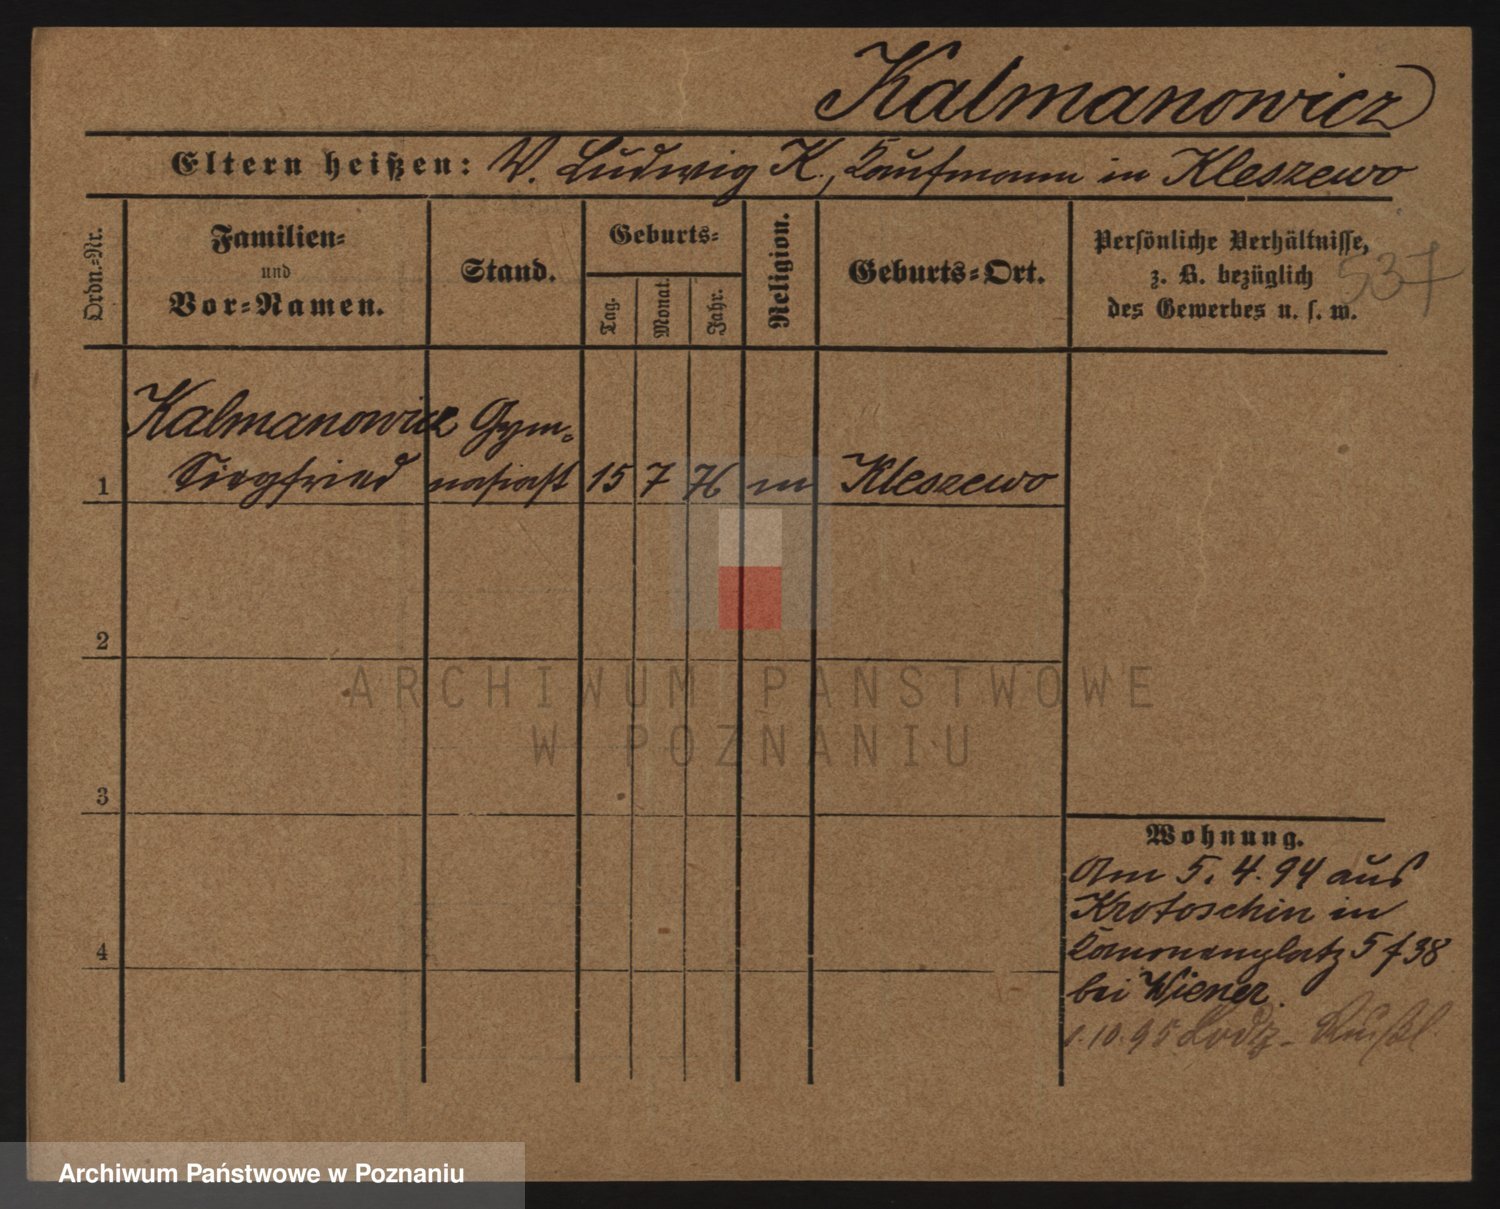 Kalmanowicz
Eltern heißen: V. Ludwig K., Kaufmann in Kleszewo
Ordn.-Nr.
Familien-
und
Vor-Namen.
Stand.
Geburts-
Tag.
Monat.
Jahr.
Religion.
Geburts-Ort.
Persönliche Verhältnisse,
z. B. bezüglich
des Gewerbes u. s. w.
537
Kalmanowicz Gym-
1 Siegfried nasiast 15 7 76 m Kleszewo
2
3
4
Wohnung.
Am 5. 4. 94 aus
Krotoschin in
Kanonenplatz 5 f 38
bei Wiener.
1.10.95 Lodz - Rußl.
ARCHIWUM PAŃSTWOWE
W POZNANIU
Archiwum Państwowe w Poznaniu